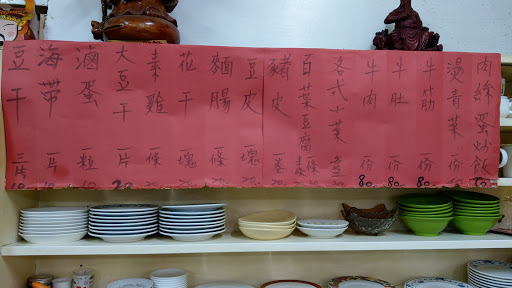 肉絲蛋炒飯
燙青菜 一份
牛筋 一份 80
牛肚 一份 80
牛肉 一份 80
各式小菜
百葉豆腐 一條
豬皮 一卷
豆皮 一塊
麵腸 一條
花干 一塊
素雞 一條
大豆干 一片 20
滷蛋 一粒 10
海帶 一片 10
豆干 三片 10